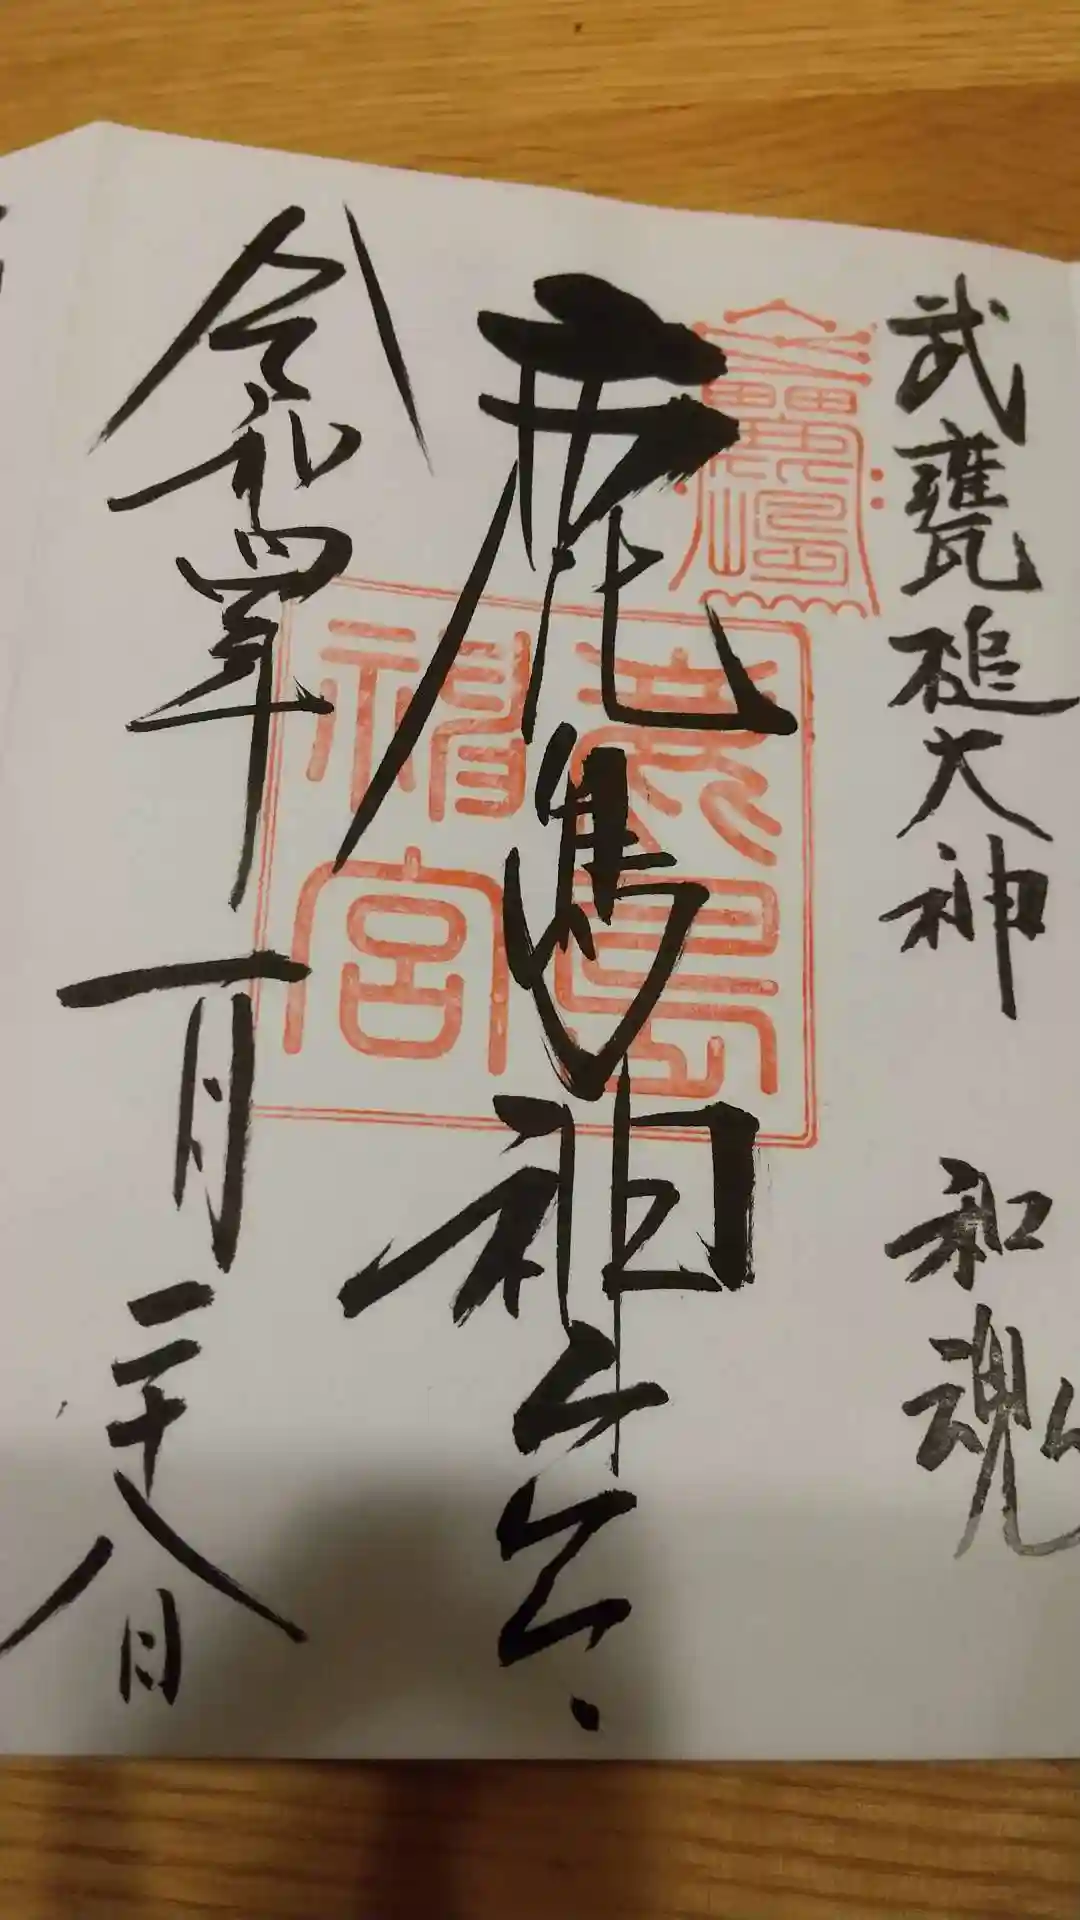 武甕槌大神　和魂
鹿島神宮
鹿島
神宮
令和四年一月二十八日